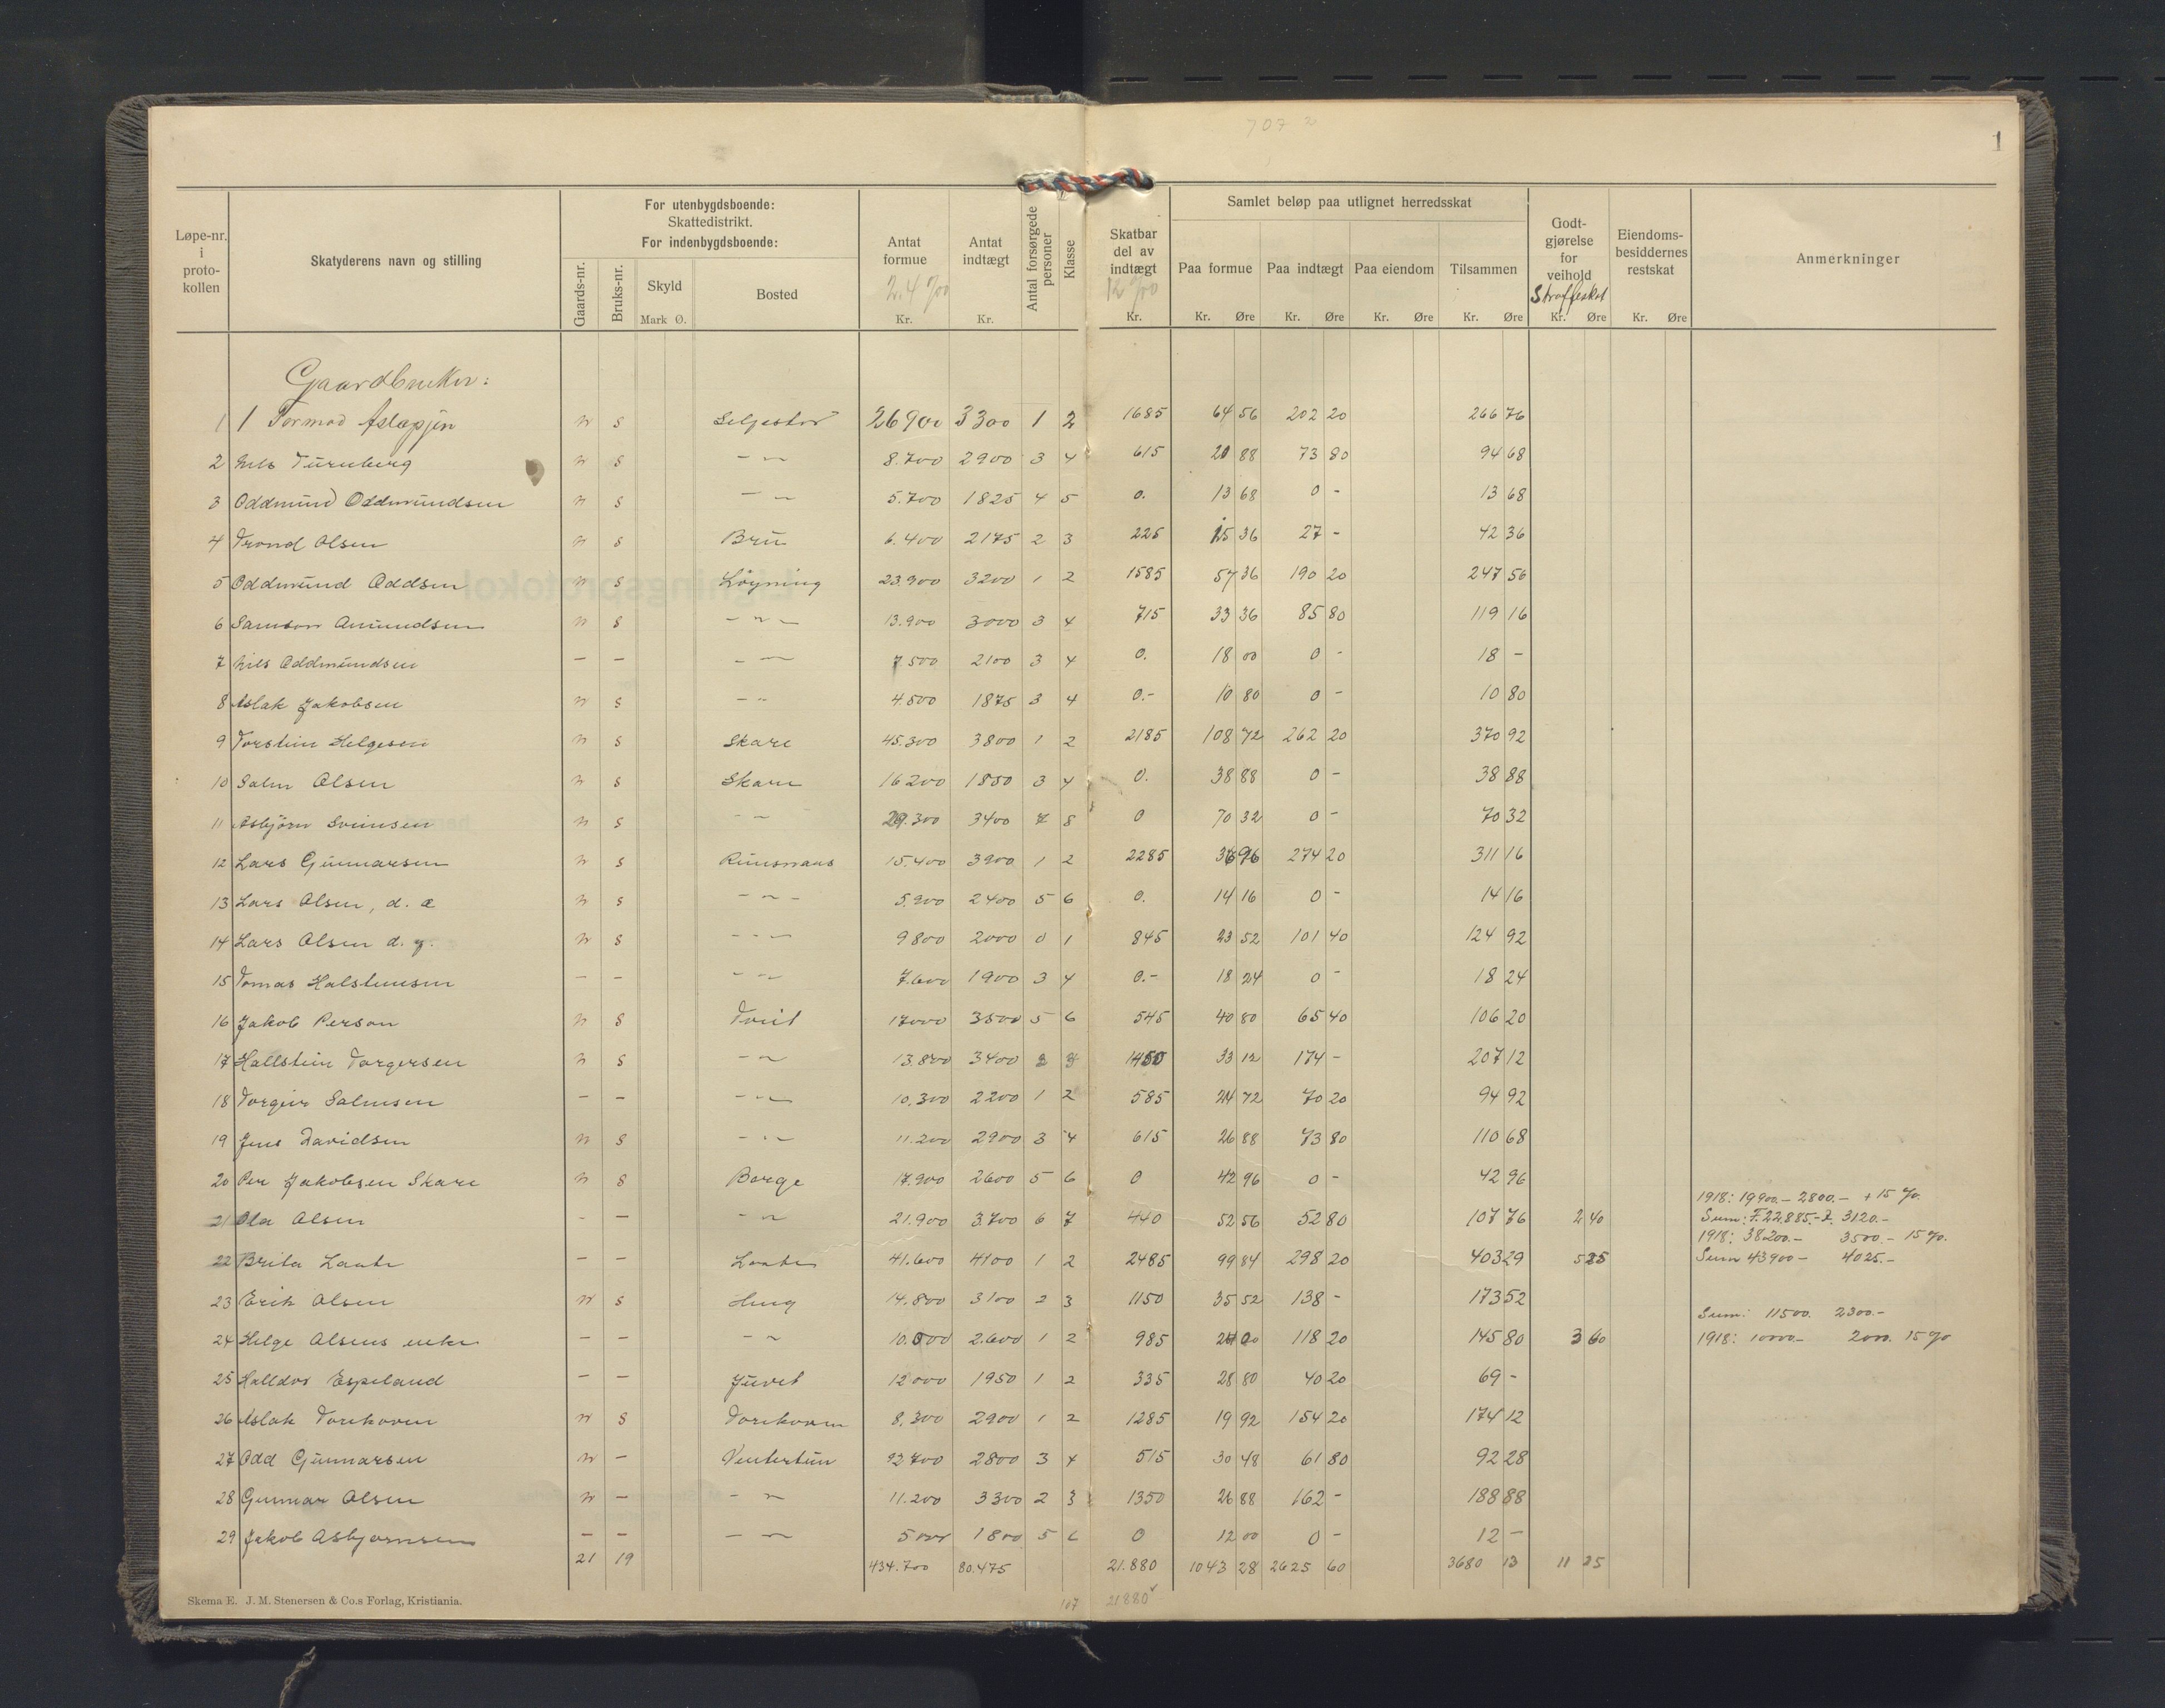 707 2
1
Løpe-nr. i proto-kollen
Skatyderens navn og stilling
For utenbygdsboende:
Skattedistrikt.
For indenbygdsboende:
Gaards-nr. Bruks-nr. Skyld Mark Ø. Bosted
Antat formue 2.4 % Kr.
Antat indtægt Kr.
Antal forsørgede personer
Klasse
Skatbar del av indtægt 12 % Kr.
Samlet beløp paa utlignet herredsskat
Paa formue Kr. Øre Paa indtægt Kr. Øre Paa eiendom Kr. Øre Tilsammen Kr. Øre
Godt-gjørelse for veihold Straffeskat Kr. Øre
Eiendoms-besiddernes restskat Kr. Øre
Anmerkninger
Gaardbruker:
1 1 Tormod Aslagsen n s Seljestad 26900 3300 1 2 1685 64 56 202 20 266 76
2 Nils Turnberg n s - " - 8.700 2900 3 4 615 20 88 73 80 94 68
3 Oddmund Oddmundsen n s - " - 5.700 1825 4 5 0. 13 68 0 - 13 68
4 Trond Olsen n s Bru 6.400 2175 2 3 225 15 36 27 - 42 36
5 Oddmund Oddsen n s Løyning 23.900 3200 1 2 1585 57 36 190 20 247 56
6 Samson Amundsen n s - " - 13.900 3000 3 4 715 33 36 85 80 119 16
7 Nils Oddmundsen - - - " - 7.500 2100 3 4 0. 18 00 0 - 18 -
8 Aslak Jakobsen n s - " - 4.500 1875 3 4 0.- 10 80 0 - 10 80
9 Torstein Helgesen n s Skare 45.300 3800 1 2 2185 108 72 262 20 370 92
10 Salm Olsen n s Skare 16200 1850 3 4 0. 38 88 0 - 38 88
11 Asbjörn Sveinsen n s - " - 29.300 3400 7 8 0 70 32 0 - 70 32
12 Lars Gunnarsen n s Runsnaas 15.400 3900 1 2 2285 36 96 274 20 311 16
13 Lars Olsen, d. e n s - " - 5.900 2400 5 6 0. 14 16 0 - 14 16
14 Lars Olsen d. y. n s - " - 9800 2000 0 1 845 23 52 101 40 124 92
15 Tomas Halsteinsen - - - " - 7.600 1900 3 4 0.- 18 24 0 - 18 24
16 Jakob Person n s Tveit 17000 3500 5 6 545 40 80 65 40 106 20
17 Hallstein Torgersen n s - " - 13.800 3400 2 3 1450 33 12 174 - 207 12
18 Torgeir Salmsen - - - " - 10.300 2200 1 2 585 24 72 70 20 94 92
19 Jens Davidsen n s - " - 11.200 2900 3 4 615 26 88 73 80 110 68
20 Per Jakobsen Skare n s Borge 17.900 2600 5 6 0 42 96 0 - 42 96
1918: 19900.- 2800.- + 15 %.
21 Ola Olsen - - - " - 21.900 3.700 6 7 440 52 56 52 80 107 76 2 40 Sum: F. 22.885.- I. 3120.-
1918: 38200.- 3500.- 15 %.
22 Brita Laate - - Laate 41.600 4100 1 2 2485 99 84 298 20 403 29 5 25 Sum 43900 - 4025.-
23 Erik Olsen n s Haug 14.800 3100 2 3 1150 35 52 138 - 173 52
Sum: 11500. 2300.-
24 Helge Olsens enke - - - " - 10.000 2.600 1 2 985 24 00 118 20 145 80 3 60 1918: 10000.- 2000. 15 %
25 Halldor Espeland - - Juvet 12000 1950 1 2 335 28 80 40 20 69 -
26 Aslak Torehoven n s Torehoven 8.300 2900 1 2 1285 19 92 154 20 174 12
27 Odd Gunnarsen n - Ventertun 12700 2800 3 4 515 30 48 61 80 92 28
28 Gunnar Olsen n - - " - 11.200 3300 2 3 1350 26 88 162 - 188 88
29 Jakob Asbjørnsen - - - " - 5000 1800 5 6 0 12 00 0 - 12 -
21 19 434.700 80.475 21.880 1043 28 2625 60 3680 13 11 25
107 21880
Skema E. J. M. Stenersen & Co.s Forlag, Kristiania.